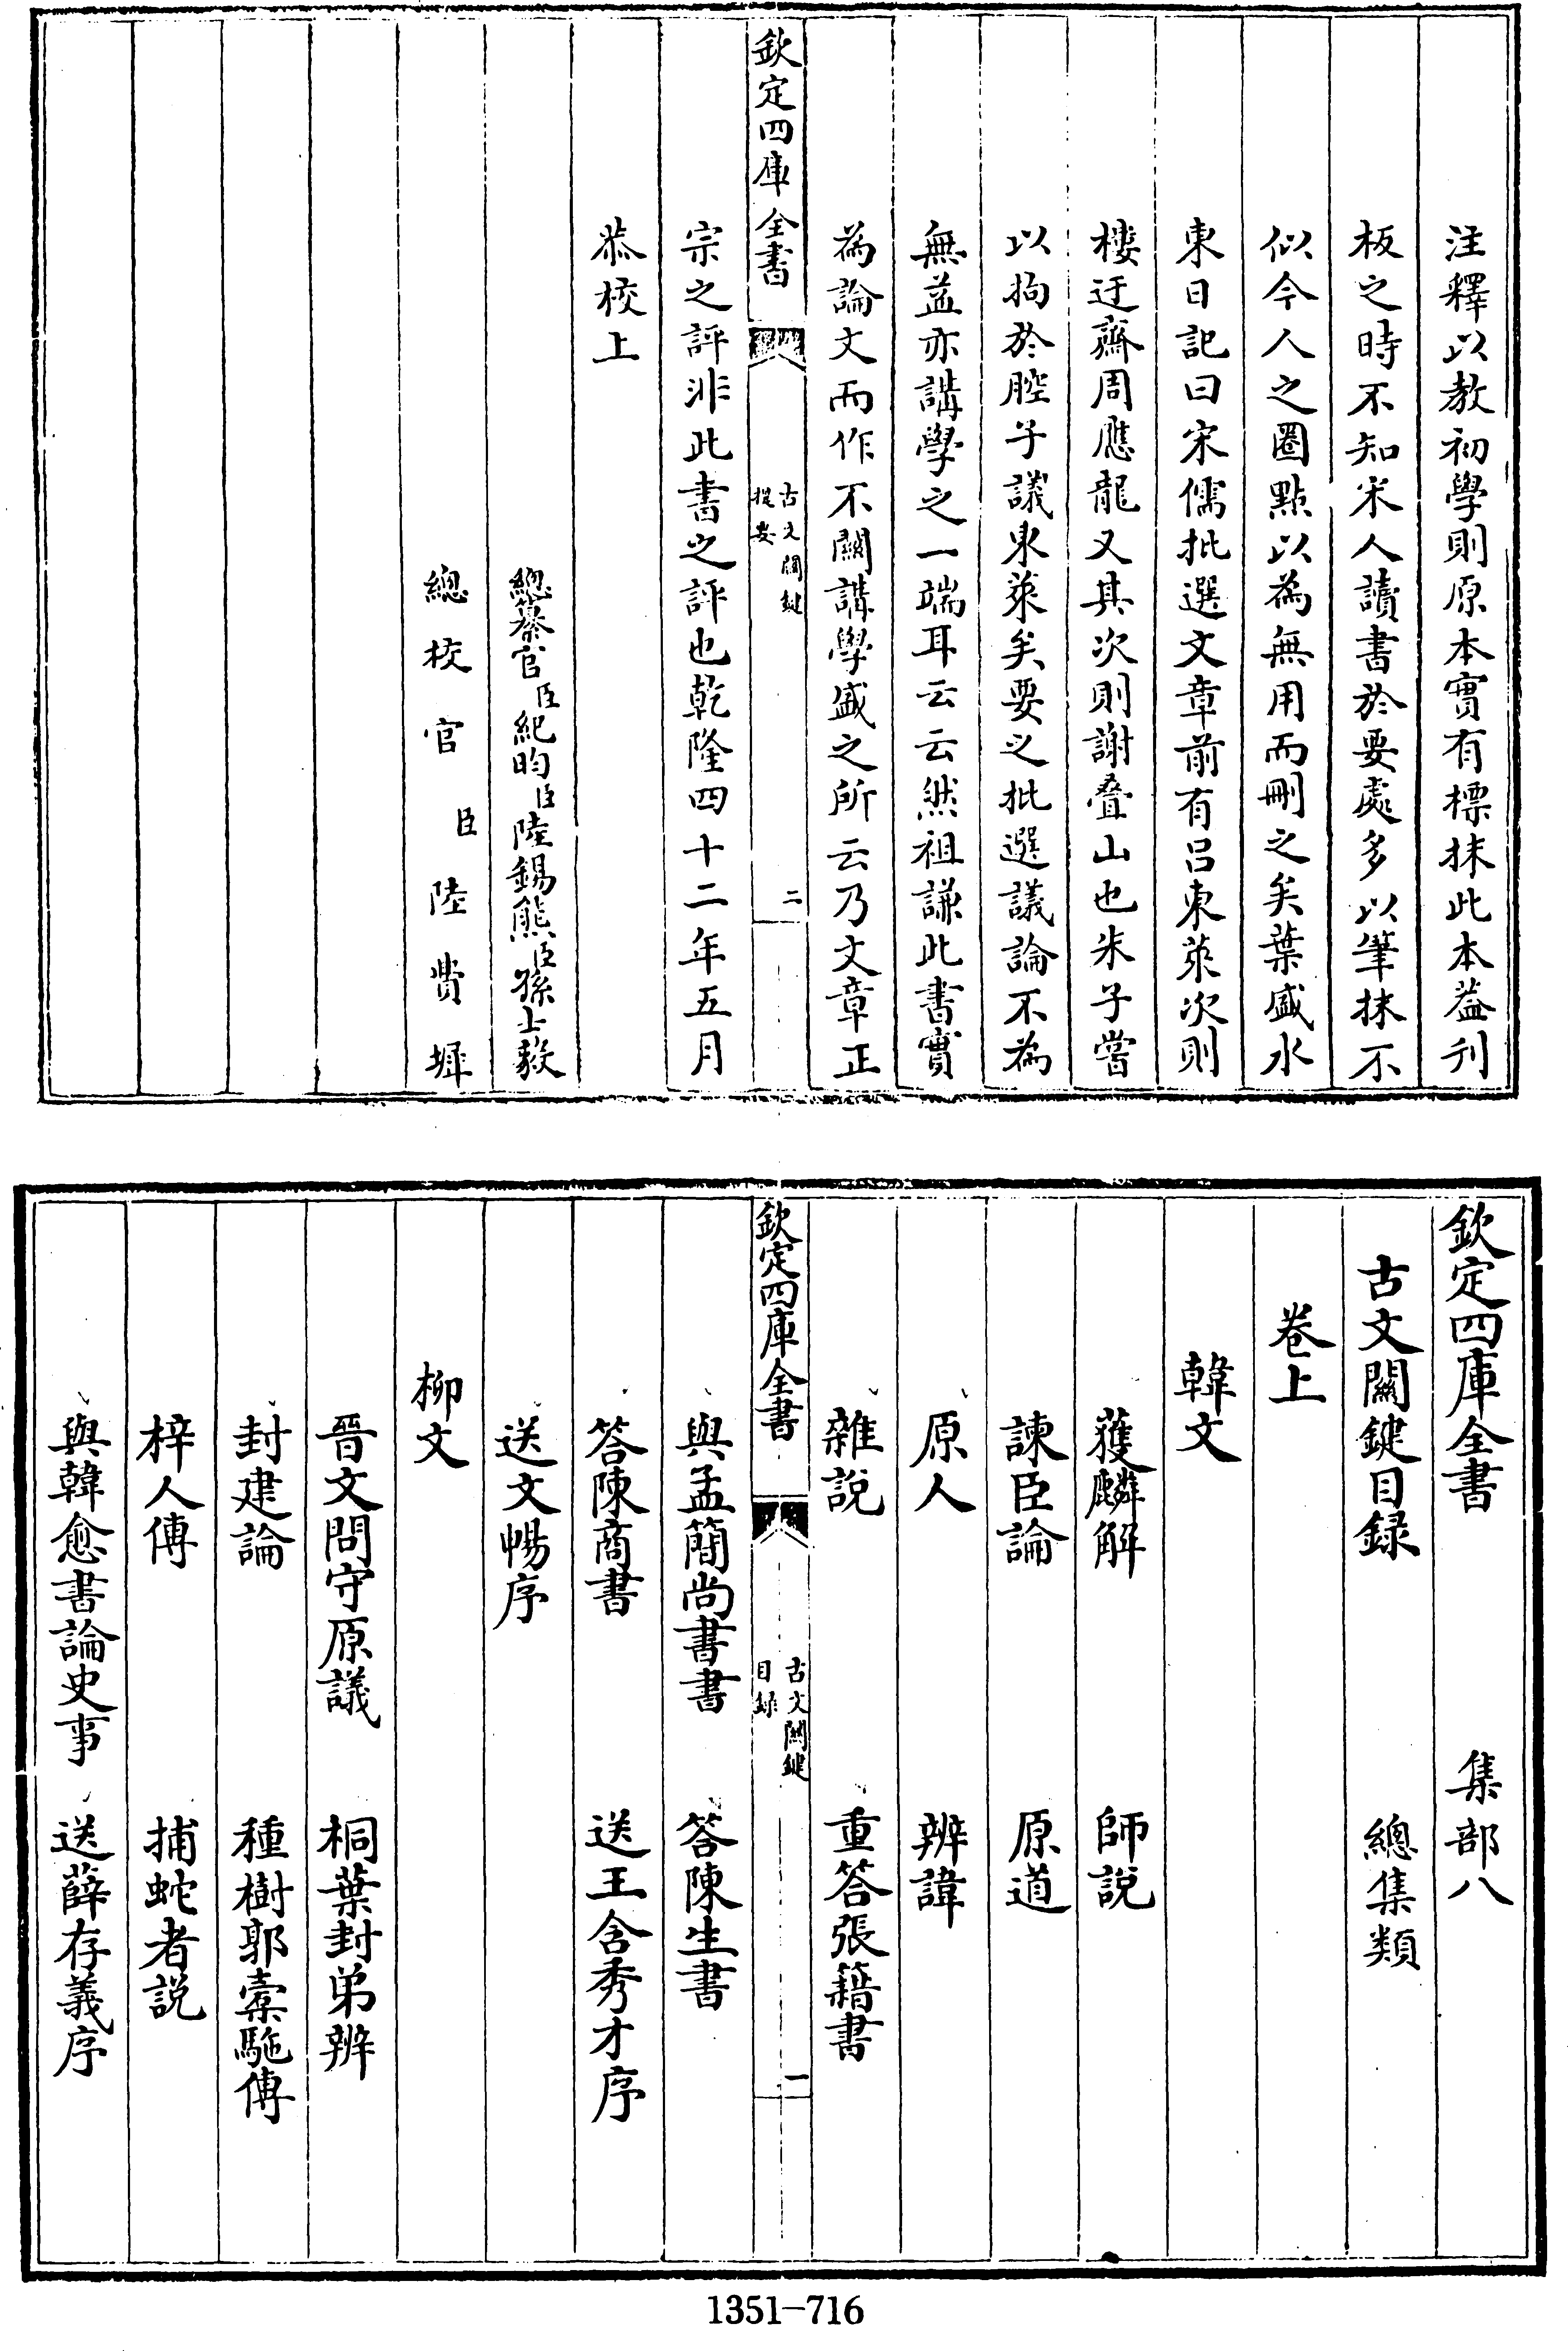 注釋以教初學則原本實有標抹此本葢刋
板之時不知宋人讀書於要處多以筆抹不
似今人之圈點以為無用而刪之矣葉盛水
東日記曰宋儒批選文章前有吕東萊次則
樓迂齋周應龍又其次則謝疊山也朱子嘗
以拘於腔子議東萊矣要之批選議論不為
無益亦講學之一端耳云云然祖謙此書實
為論文而作不關講學盛之所云乃文章正
欽定四庫全書
古文關鍵
提要
二
宗之評非此書之評也乾隆四十二年五月
恭校上
總纂官臣紀昀臣陸錫熊臣孫士毅
總校官臣陸費墀
欽定四庫全書 集部八
古文關鍵目録 總集類
卷上
韓文
獲麟解 師說
諫臣論 原道
原人 辨諱
雜說 重答張籍書
欽定四庫全書
古文關鍵
目録
一
與孟簡尚書書 答陳生書
答陳商書 送王含秀才序
送文暢序
柳文
晉文問守原議 桐葉封弟辨
封建論 種樹郭橐駞傳
梓人傳 捕蛇者説
與韓愈書論史事 送薛存義序
1351-716